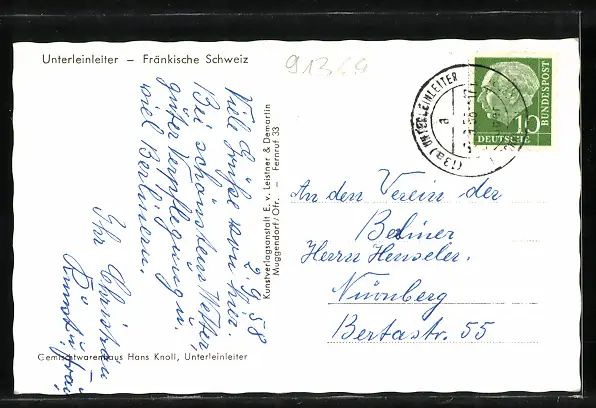 Unterleinleiter – Fränkische Schweiz
91369
(13a) UNTERLEINLEITER
a
10
DEUTSCHE
BUNDESPOST
2.9.58
Viele Grüße von hier.
Bei schönstem Wetter,
guter Verpflegung u.
viel Berlinern.
Ihr Christian
Kunst u. Frau
Kunstverlagsanstalt E. v. Leistner & Demartin
Muggendorf/Ofr. – Fernruf 33
An den Verein der
Berliner
Herrn Henseler.
Nürnberg
Bertastr. 55
Gemischtwarenhaus Hans Knoll, Unterleinleiter